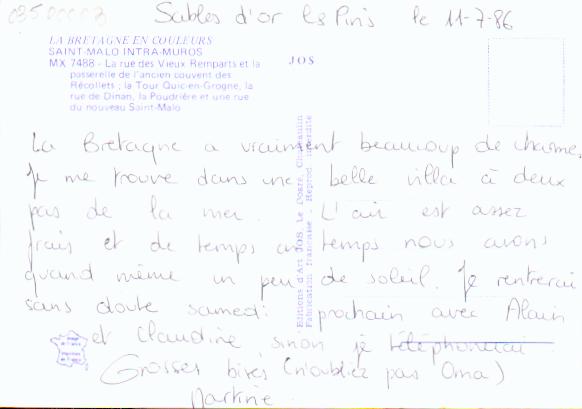 03500003
Sables d'or les Pins le 11-7-86
LA BRETAGNE EN COULEURS
SAINT-MALO INTRA-MUROS
MX 7488 - La rue des Vieux Remparts et la
passerelle de l'ancien couvent des
Récollets ; la Tour Quic-en-Grogne, la
rue de Dinan, la Poudrière et une rue
du nouveau Saint-Malo
JOS
La Bretagne a vraiment beaucoup de charme,
Je me trouve dans une belle villa à deux
pas de la mer. L'air est assez
frais et de temps en temps nous avons
quand même un peu de soleil. Je rentrerai
sans doute samedi prochain avec Alain
et Claudine, sinon je téléphonerai.
Grosses bises (n'oubliez pas Oma)
Martine
Editions d'Art JOS, Le Doaré, Châteaulin
Fabrication française. Reprod. interdite